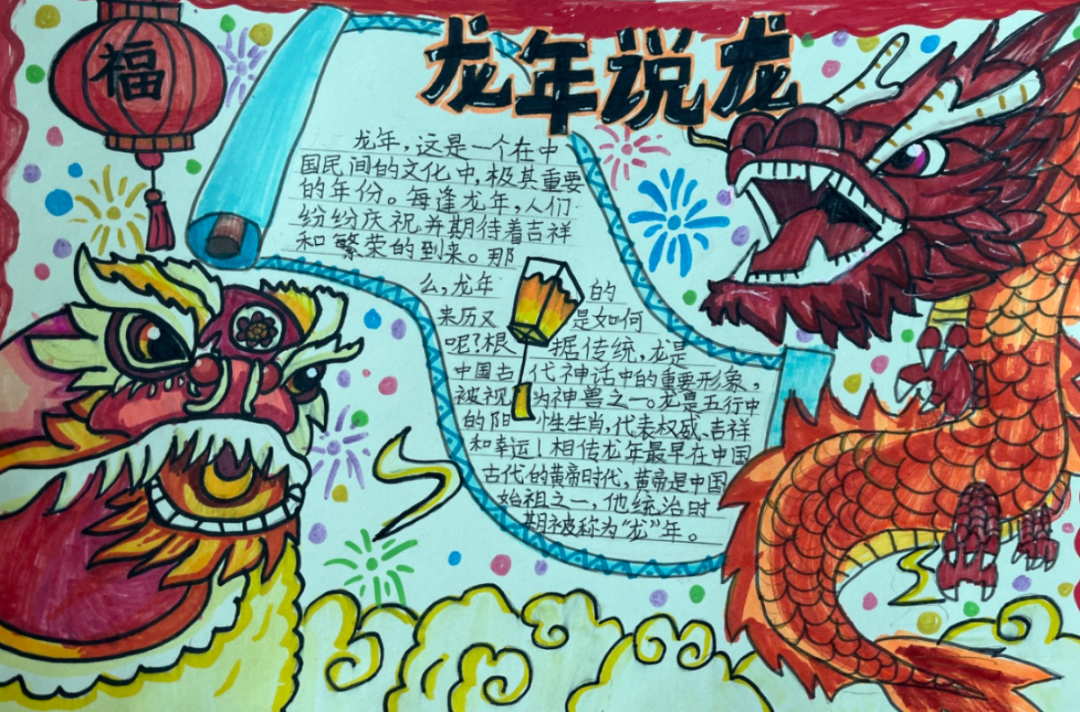 福
龙年说龙
龙年，这是一个在中
国民间的文化中，极其重要
的年份。每逢龙年，人们
纷纷庆祝并期待着吉祥
和繁荣的到来。那
么，龙年的
来历又是如何
呢？根据传统，龙是
中国古代神话中的重要形象，
被视为神兽之一。龙是五行中
的阳性生肖，代表权威、吉祥
和幸运！相传龙年最早在中国
古代的黄帝时代，黄帝是中国
始祖之一，他统治时
期被称为“龙”年。